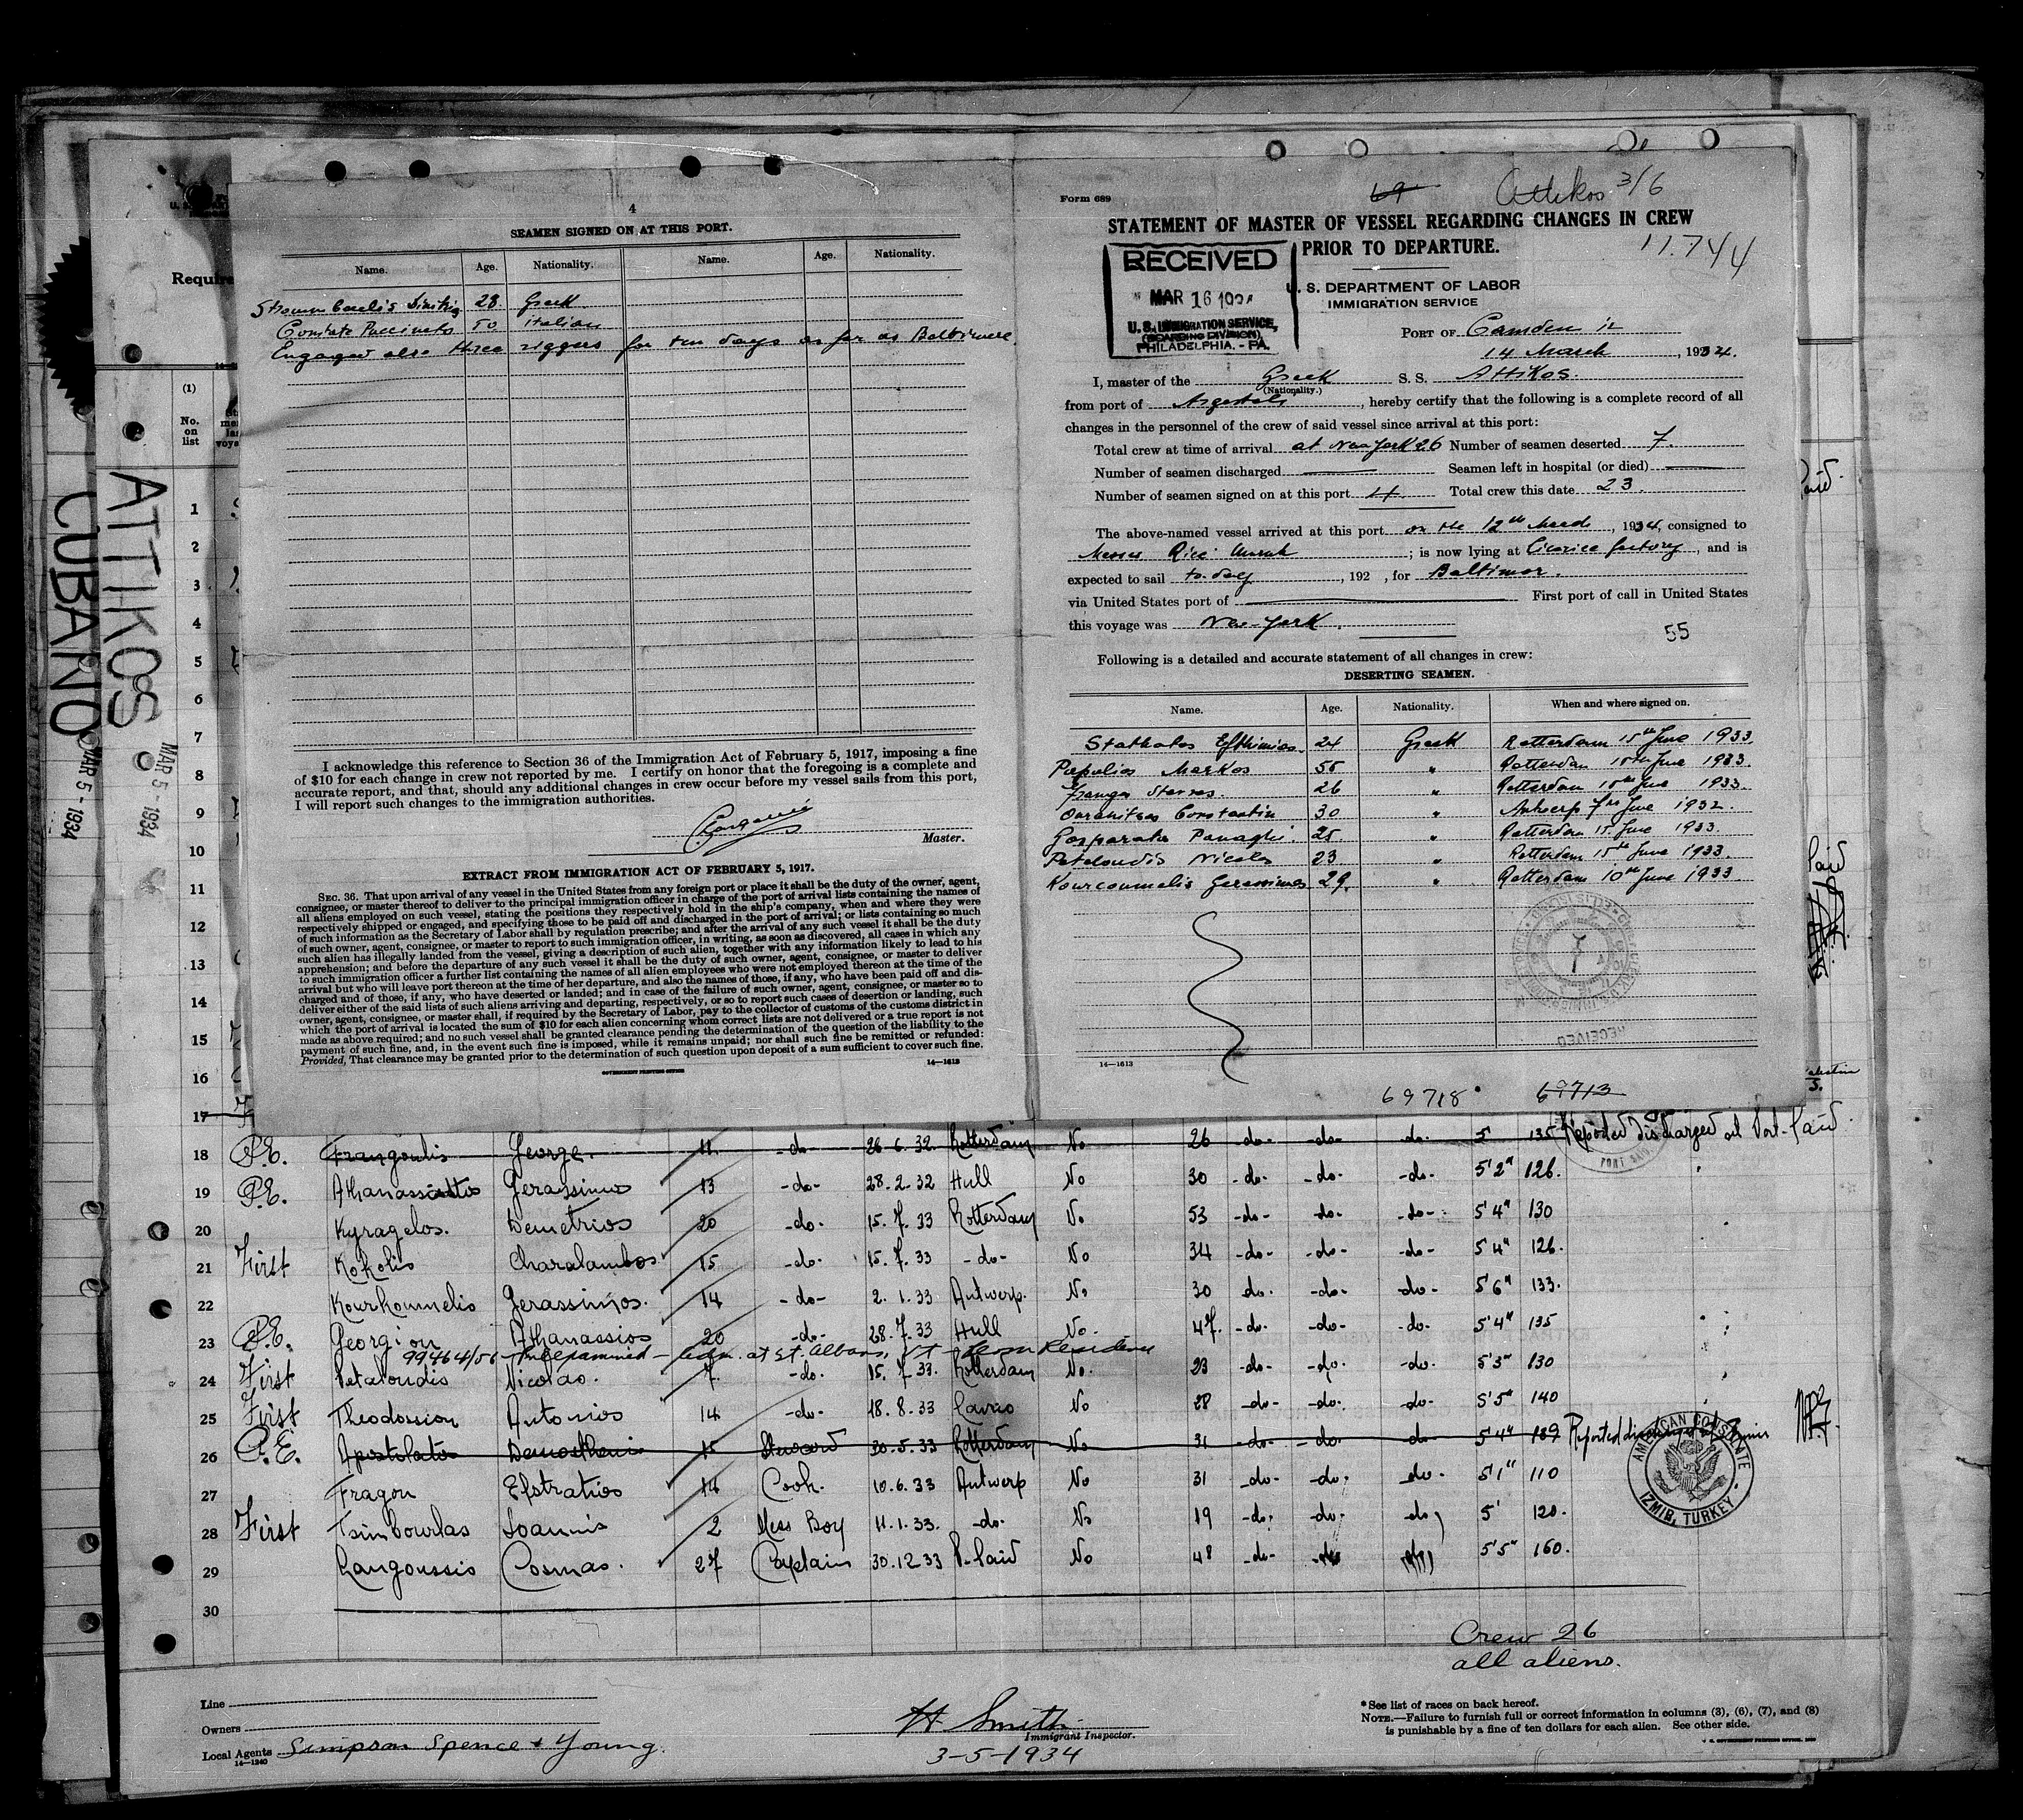 4
SEAMEN SIGNED ON AT THIS PORT.
Name. Age. Nationality. Name. Age. Nationality.
28 Greek
50 italian
Engaged also three riggers for ten days as far as Baltimore.
I acknowledge this reference to Section 36 of the Immigration Act of February 5, 1917, imposing a fine
of $10 for each change in crew not reported by me. I certify on honor that the foregoing is a complete and
accurate report, and that, should any additional changes in crew occur before my vessel sails from this port,
I will report such changes to the immigration authorities.
Master.
EXTRACT FROM IMMIGRATION ACT OF FEBRUARY 5, 1917.
SEC. 36. That upon arrival of any vessel in the United States from any foreign port or place it shall be the duty of the owner, agent,
consignee, or master thereof to deliver to the principal immigration officer in charge of the port of arrival lists containing the names of
all aliens employed on such vessel, stating the positions they respectively hold in the ship's company, when and where they were
respectively shipped or engaged, and specifying those to be paid off and discharged in the port of arrival; or lists containing so much
of such information as the Secretary of Labor shall by regulation prescribe; and after the arrival of any such vessel it shall be the duty
of such owner, agent, consignee, or master to report to such immigration officer, in writing, as soon as discovered, all cases in which any
such alien has illegally landed from the vessel, giving a description of such alien, together with any information likely to lead to his
apprehension; and before the departure of any such vessel it shall be the duty of such owner, agent, consignee, or master to deliver
to such immigration officer a further list containing the names of all alien employees who were not employed thereon at the time of the
arrival but who will leave port thereon at the time of her departure, and also the names of those, if any, who have been paid off and dis-
charged and of those, if any, who have deserted or landed; and in case of the failure of such owner, agent, consignee, or master so to
deliver either of the said lists of such aliens arriving and departing, respectively, or so to report such cases of desertion or landing, such
owner, agent, consignee, or master shall, if required by the Secretary of Labor, pay to the collector of customs of the customs district in
which the port of arrival is located the sum of $10 for each alien concerning whom correct lists are not delivered or a true report is not
made as above required; and no such vessel shall be granted clearance pending the determination of the question of the liability to the
payment of such fine, and, in the event such fine is imposed, while it remains unpaid; nor shall such fine be remitted or refunded:
Provided, That clearance may be granted prior to the determination of such question upon deposit of a sum sufficient to cover such fine.
14—1613
GOVERNMENT PRINTING OFFICE
Form 689 69 Attikos 3/6
STATEMENT OF MASTER OF VESSEL REGARDING CHANGES IN CREW
PRIOR TO DEPARTURE.
11.744
RECEIVED
MAR 16 1934
U. S. IMMIGRATION SERVICE,
(BOARDING DIVISION)
PHILADELPHIA. - PA.
U. S. DEPARTMENT OF LABOR
IMMIGRATION SERVICE
PORT OF Camden
14 March, 1934.
I, master of the Greek S. S. Attikos.
(Nationality.)
from port of Argostoli, hereby certify that the following is a complete record of all
changes in the personnel of the crew of said vessel since arrival at this port:
Total crew at time of arrival at New York 26 Number of seamen deserted 7.
Number of seamen discharged Seamen left in hospital (or died)
Number of seamen signed on at this port 4 Total crew this date 23.
The above-named vessel arrived at this port on the 12th March, 1934, consigned to
Messrs ; is now lying at Licorice factory, and is
expected to sail to-day, 192 , for Baltimor.
via United States port of First port of call in United States
this voyage was New-York.
55
Following is a detailed and accurate statement of all changes in crew:
DESERTING SEAMEN.
Name. Age. Nationality. When and where signed on.
Stathatos Efthimios. 24 Greek Rotterdam 15th June 1933.
Papulias Markos 55 " Rotterdam 15th June 1933.
26 " Rotterdam 15th June 1933.
Constantin 30 " Antwerp June 1932.
Gasparatos Panaghi. 25 " Rotterdam 15. June 1933.
Petaloudis Nicolas 23 " Rotterdam 15th June 1933.
Kourcoumelis Gerasimos 29. " Rotterdam 10th June 1933.
RECEIVED
14—1613
69718 69713
Require
ATTIKOS
CUBANO
MAR 5 - 1934
MAR 5 - 1934
(1)
No.
on
list
1
2
3
4
5
6
7
8
9
10
11
12
13
14
15
16
17
18 P.E. Frangoulis George. 11 -do- 26.6.32 Rotterdam No 26 -do- -do- -do- 5 135 Reported discharged at Port-Said.
19 P.E. Gerassimos 13 -do- 28.2.32 Hull No 30 -do- -do- -do- 5'2" 126.
20 Kyragelos. Demetrios 20 -do- 15.7.33 Rotterdam No 53 -do- -do- -do- 5'4" 130
21 First Kokolis Charalambos 15 -do- 15.7.33 -do- No 34 -do- -do- -do- 5'4" 126.
22 Kourkoumelis Gerassimos. 14 -do- 2.1.33 Antwerp. No 30 -do- -do- -do- 5'6" 133.
23 P.E. Georgiou Athanassios 20 -do- 28.7.33 Hull No. 47. -do- -do- -do- 5'4" 135
99464/56 - Preexamined - adm. at St. Albans, Vt - Perm Residence
24 First Petaloudis Nicolao. 7. -do- 15.7.33. Rotterdam No. 23 -do- -do- -do- 5'3" 130
25 First Theodossiou Antonios 14 -do- 18.8.33 Lavrio No 28 -do- -do- -do- 5'5" 140
26 P.E. Apostolatos Demosthenis 15 Steward 30.5.33 Rotterdam No 31 -do- -do- do 5'4" 139 Reported discharged at Izmir
27 Fragou Efstratios 14 Cook. 10.6.33 Antwerp No 31 -do- -do- -do- 5'1" 110
28 First Tsimbourlas Ioannis 2 Mess Boy 11.1.33. -do- No 19 -do- -do- -do- 5' 120.
29 Rangoussis Cosmas. 27 Captain 30.12.33 P-Said No 48 -do- -do- 5'5" 160.
30
AMERICAN CONSULATE
IZMIR, TURKEY
Crew 26
all aliens.
Line
Owners
Local Agents Simpson Spence & Young.
14—1240
H Smith
Immigrant Inspector.
3-5-1934
*See list of races on back hereof.
NOTE.—Failure to furnish full or correct information in columns (3), (6), (7), and (8)
is punishable by a fine of ten dollars for each alien. See other side.